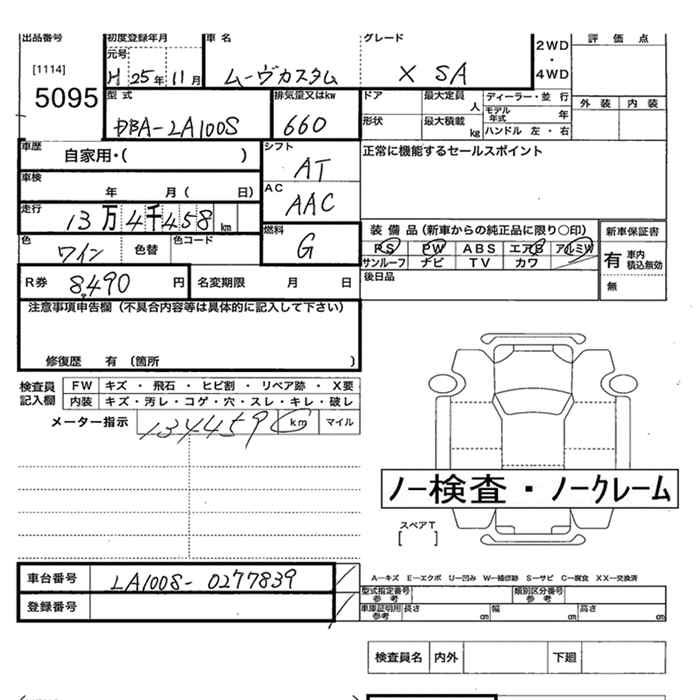 出品番号 初度登録年月 車名 グレード 2WD・4WD 評価点
[1114] 元号
5095 H 25年 11月 ムーヴカスタム X SA 外装 内装
型式 排気量又はkw ドア 最大定員 人 ディーラー・並行
DBA-LA100S 660 形状 最大積載 kg モデル年式 年
ハンドル 左・右
車歴 自家用・( ) シフト AT 正常に機能するセールスポイント
車検 年 月( 日) AC AAC
走行 13万4千458 km
色 ワイン 色替 色コード 燃料 G
装備品(新車からの純正品に限り○印) 新車保証書
PS PW ABS エアB アルミW 有 車内積込無効
サンルーフ ナビ TV カワ 無
R券 8,490 円 名変期限 月 日 後日品
注意事項申告欄(不具合内容等は具体的に記入して下さい)
修復歴 有 (箇所 )
検査員記入欄 FW キズ・飛石・ヒビ割・リペア跡・X要
内装 キズ・汚レ・コゲ・穴・スレ・キレ・破レ
メーター指示 134459 km マイル
ノー検査・ノークレーム
スペアT
[ ]
車台番号 LA100S-0277839
登録番号
A…キズ E…エクボ U…凹み W…補修跡 S…サビ C…腐食 XX…交換済
型式指定番号 参考 類別区分番号 参考
車庫証明用 参考 長さ cm 幅 cm 高さ cm
検査員名 内外 下廻